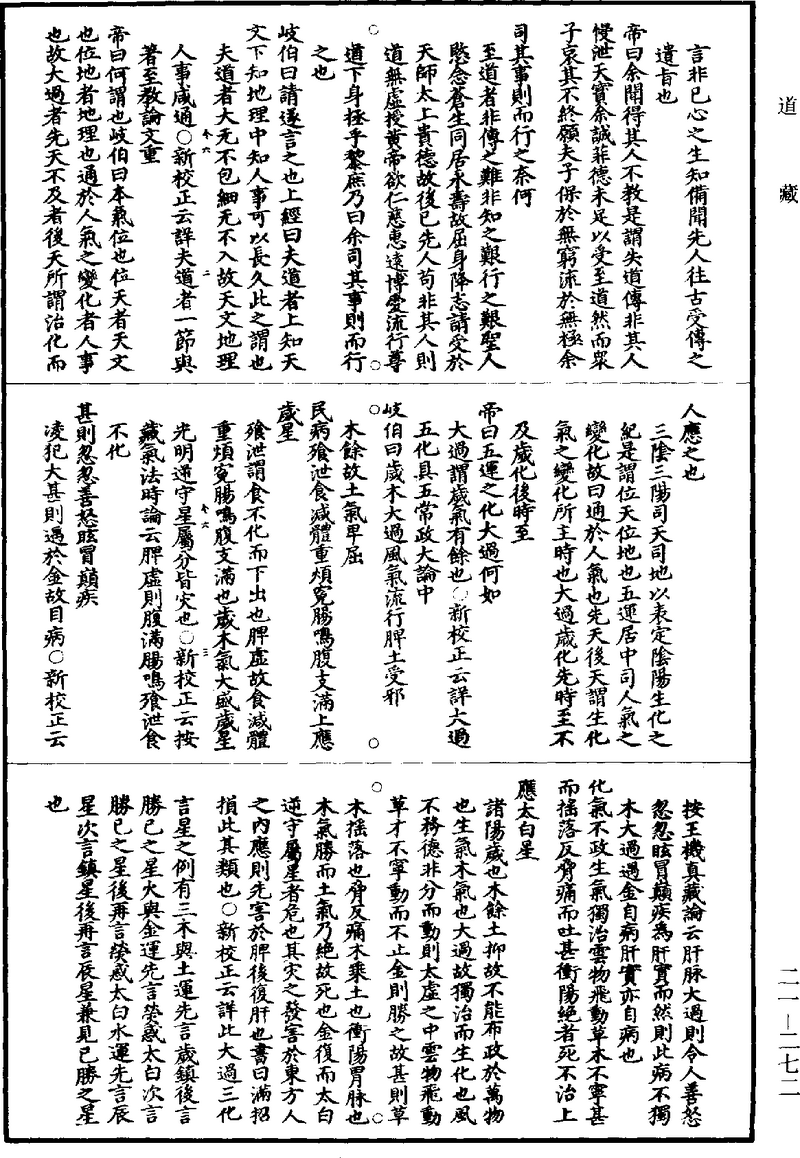 道藏
言非已心之生知備聞先人往古受傳之
遺旨也
帝曰余聞得其人不教是謂失道傳非其人
慢泄天寳余誠非德未足以受至道然而衆
子哀其不終願夫子保於無窮流於無極余
司其事則而行之奈何
至道者非傳之難非知之艱行之艱聖人
愍念蒼生同居永壽故屈身降志請受於
天師太上貴德故後已先人苟非其人則
道無虚授黄帝欲仁慈惠遠博愛流行尊
道下身拯乎黎庶乃曰余司其事則而行
之也
岐伯曰請遂言之也上經曰夫道者上知天
文下知地理中知人事可以長久此之謂也
夫道者大无不包細无不入故天文地理
人事咸通○新校正云詳夫道者一節與
著至教論文重
帝曰何謂也岐伯曰本氣位也位天者天文
也位地者地理也通於人氣之變化者人事
也故大過者先天不及者後天所謂治化而
人應之也
三陰三陽司天司地以表定陰陽生化之
紀是謂位天位地也五運居中司人氣之
變化故曰通於人氣也先天後天謂生化
氣之變化所主時也大過歲化先時至不
及歲化後時至
帝曰五運之化大過何如
大過謂歲氣有餘也○新校正云詳大過
五化具五常政大論中
岐伯曰歲木大過風氣流行脾土受邪
木餘故土氣卑屈
民病飧泄食減體重煩寃腸鳴腹支滿上應
歲星
飧泄謂食不化而下出也脾虚故食減體
重煩寃腸鳴腹支滿也歲木氣大盛歲星
光明逆守星屬分皆灾也○新校正云按
藏氣法時論云脾虚則腹滿腸鳴飧泄食
不化
甚則忽忽善怒眩冒巔疾
凌犯大甚則遇於金故目病○新校正云
按玉機真藏論云肝脉大過則令人善怒
忽忽眩冒巔疾為肝實而然則此病不獨
木大過遇金自病肝實亦自病也
化氣不政生氣獨治雲物飛動草木不寧甚
而揺落反脅痛而吐甚衝陽絕者死不治上
應太白星
諸陽歲也木餘土抑故不能布政於萬物
也生氣木氣也大過故獨治而生化也風
不務德非分而動則太虚之中雲物飛動
草木不寧動而不止金則勝之故甚則草
木揺落也脅反痛木乘土也衝陽胃脉也
木氣勝而土氣乃絶故死也金復而太白
逆守屬星者危也其灾之發害於東方人
之内應則先害於脾後復肝也書曰滿招
損此其類也○新校正云詳此大過三化
言星之例有三木與土運先言歲鎮後言
勝已之星火與金運先言熒惑太白次言
勝已之星後再言熒惑太白水運先言辰
星次言鎮星後再言辰星兼見已勝之星
也
二一—二七二